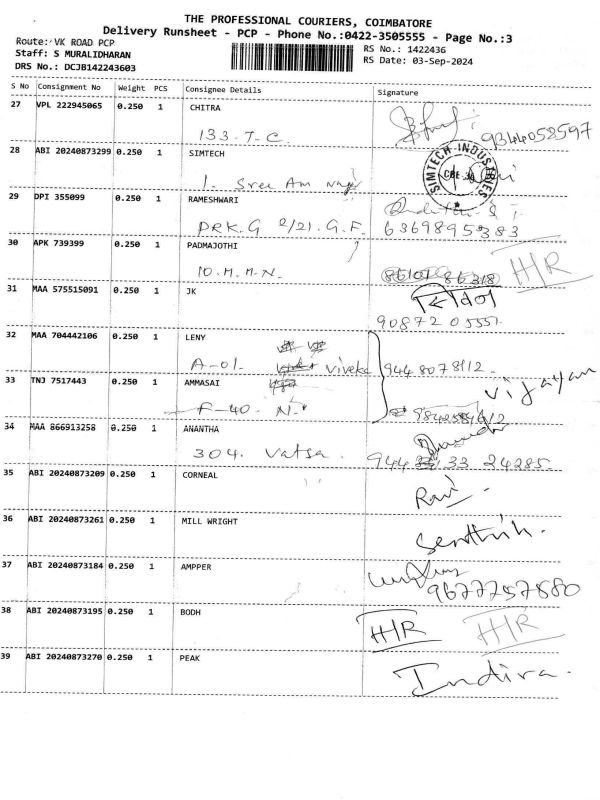 THE PROFESSIONAL COURIERS, COIMBATORE
Delivery Runsheet - PCP - Phone No.:0422-3505555 - Page No.:3
Route: VK ROAD PCP
Staff: S MURALIDHARAN
DRS No.: DCJB142243603
RS No.: 1422436
RS Date: 03-Sep-2024
S No Consignment No Weight PCS Consignee Details Signature
27 VPL 222945065 0.250 1 CHITRA
133. T. C. 9344052597
28 ABI 20240873299 0.250 1 SIMTECH
SIMTECH INDUSTRIES
1. Sree Am
29 DPI 355099 0.250 1 RAMESHWARI
PRK. G 2/21. G. F. 6369895383
30 APK 739399 0.250 1 PADMAJOTHI
10. M. M. N. H/R
31 MAA 575515091 0.250 1 JK
90872 05551
32 MAA 704442106 0.250 1 LENY
A-01. Viveka 9448078112.
33 TNJ 7517443 0.250 1 AMMASAI
Vijayan
F-40. N.
34 MAA 866913258 0.250 1 ANANTHA
304. Vatsa. 944 33 24285.
35 ABI 20240873209 0.250 1 CORNEAL
Ravi
36 ABI 20240873261 0.250 1 MILL WRIGHT
Senthil.
37 ABI 20240873184 0.250 1 AMPPER
9677757880
38 ABI 20240873195 0.250 1 BODH
H/R H/R
39 ABI 20240873270 0.250 1 PEAK
Indira.